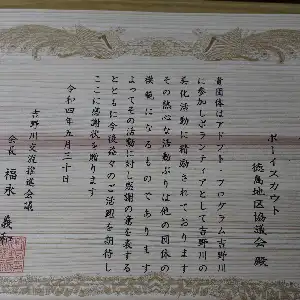 ボーイスカウト
徳島地区協議会 殿
貴団体はアドプト・プログラム吉野川
に参加しボランティアとして吉野川の
美化活動に精励されております
その熱心な活動ぶりは他の団体の
模範になるものであります
よってその活動に対し感謝の意を表する
とともに今後益々のご活躍を期待し
ここに感謝状を贈ります
令和四年五月三十日
吉野川交流推進会議
会長 福永 義和